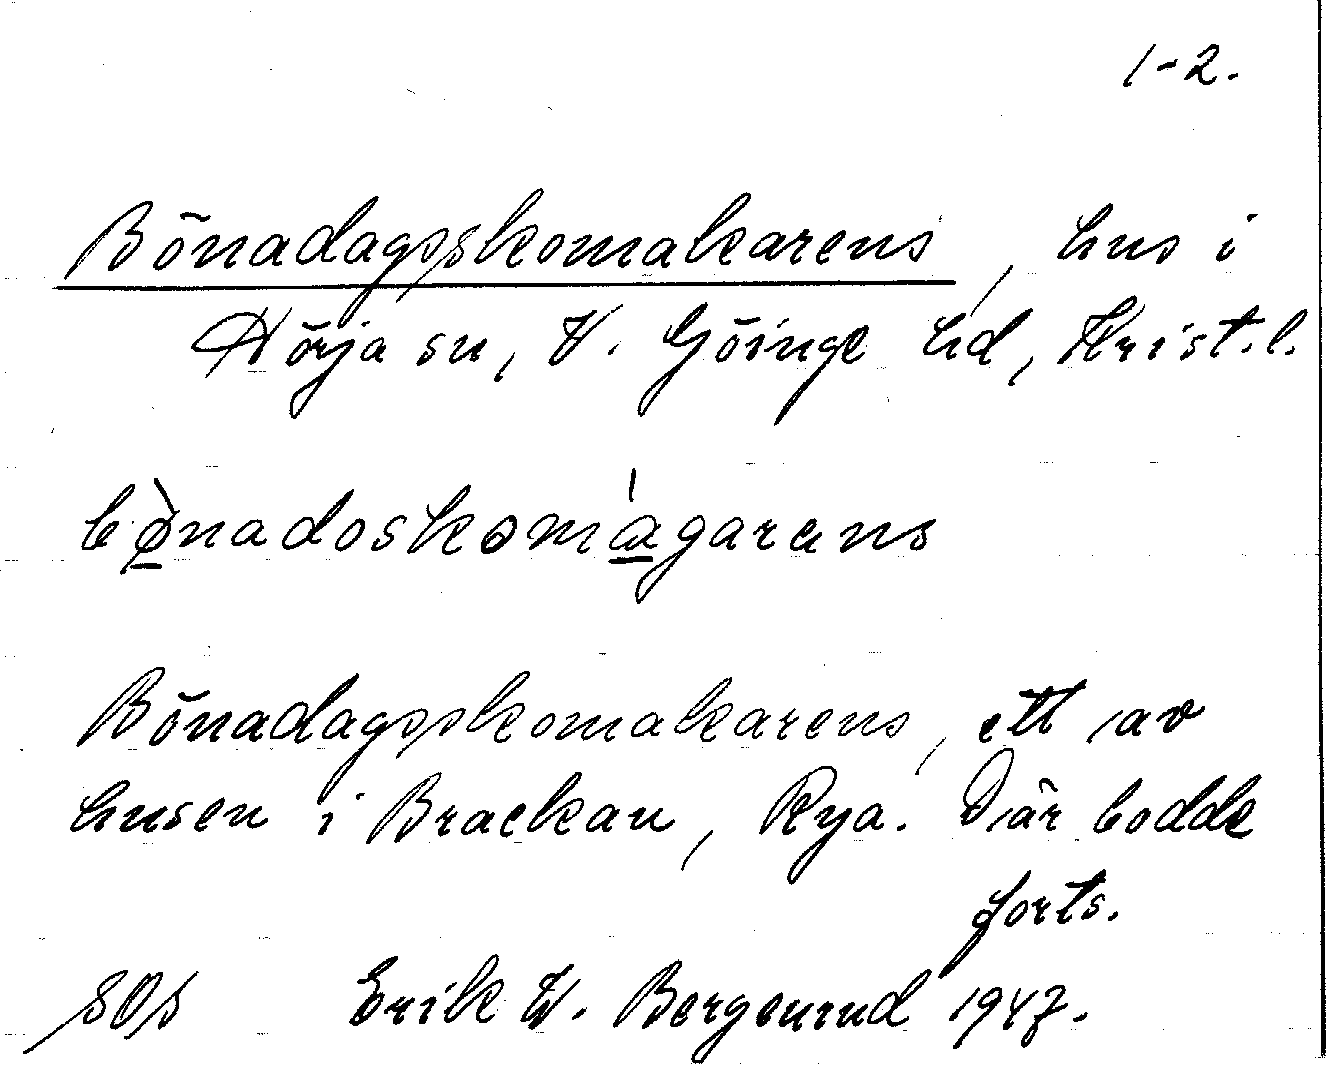 1-2.
Bönadagsskomakarens, hus i
Hörja sn, V. Göinge hd, Krist.l.
bø̀nadoskomágarens
Bönadagsskomakarens, ett av
husen i Brackan, Rya. Där bodde
forts.
SOS Erik W. Bergenrud 1947.